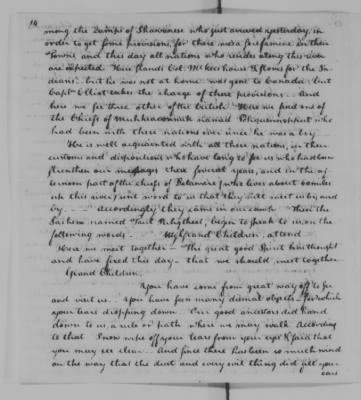 14
among the Camps of Shawanese who just arrived yesterday, in
order to get some provisions, for there was a fortnight in their
Towns, and this day all nations who reside along this river
are expected. Here stands Col. McKees house & stores for the In-
dians. but he was not at home was gone to Canada; but
Capt Elliot takes the charge of these provisions. And
here we see three other of the British. Here we find one of
the Chiefs of Muhheaconnuk named Pohquannoppeet who
had been with these nations ever since he was a boy.
He is well acquainted with all these nations, in their
customs and dispositions who have long to for us who had been
strengthen our messages these several years, and in the af-
ternoon part of the chiefs of Delaware (who lives about 5 miles
up this side) sent word to us that they will visit us by and
by. Accordingly they came in Then the
Sachem named begin to speak to us in the
following words. My Grand Children, attend
Here we meet together - The great good Spirit has thought
and have fixed this day - that we should meet together
Grand Children,
You have come from great way off to see
and visit us. You have seen many dismal objects - for which
your tears dropping down. Our good ancestors did hand
down to us a rule or path where we may walk. According
to that I now wipe off your tears from your eyes & face that
you may see clear. And since there has been so much wind
on the way that the dust and every evil thing did fill your
ears